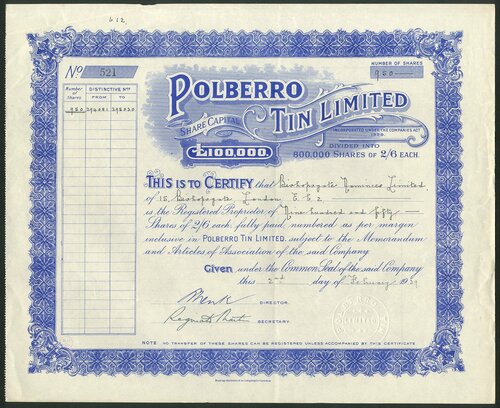 612.
No 521
NUMBER OF SHARES
950
POLBERRO
TIN LIMITED
SHARE CAPITAL
£100,000
INCORPORATED UNDER THE COMPANIES ACT
1929.
DIVIDED INTO
800,000 SHARES OF 2/6 EACH.
Number of Shares
DISTINCTIVE Nos
FROM TO
950
THIS IS TO CERTIFY that Bishopsgate Nominees Limited
of 15, Bishopsgate London E.C.2
is the Registered Proprietor of Nine hundred and fifty
Shares of 2/6 each, fully paid, numbered as per margin
inclusive in POLBERRO TIN LIMITED. subject to the Memorandum
and Articles of Association of the said Company
Given under the Common Seal of the said Company
this 2nd day of February 1939
DIRECTOR.
SECRETARY.
NOTE: NO TRANSFER OF THESE SHARES CAN BE REGISTERED UNLESS ACCOMPANIED BY THIS CERTIFICATE